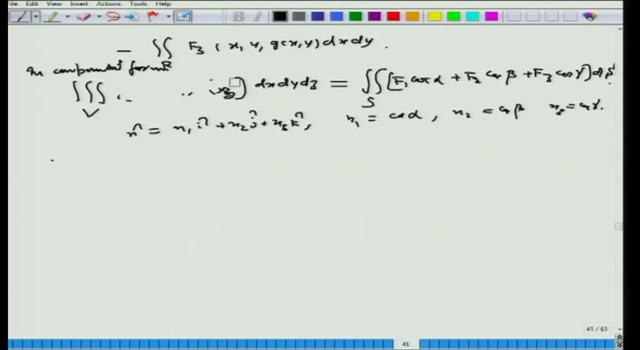 Edit View Insert Actions Tools Help
− ∬_R F₃ (x, y, g(x,y)) dx dy.
In component form
∭_V dx dy dz = ∬_S [F₁ cos α + F₂ cos β + F₃ cos γ] dS
n̂ = n₁ î + n₂ ĵ + n₃ k̂, n₁ = cos α, n₂ = cos β n₃ = cos γ.
41 / 61
41